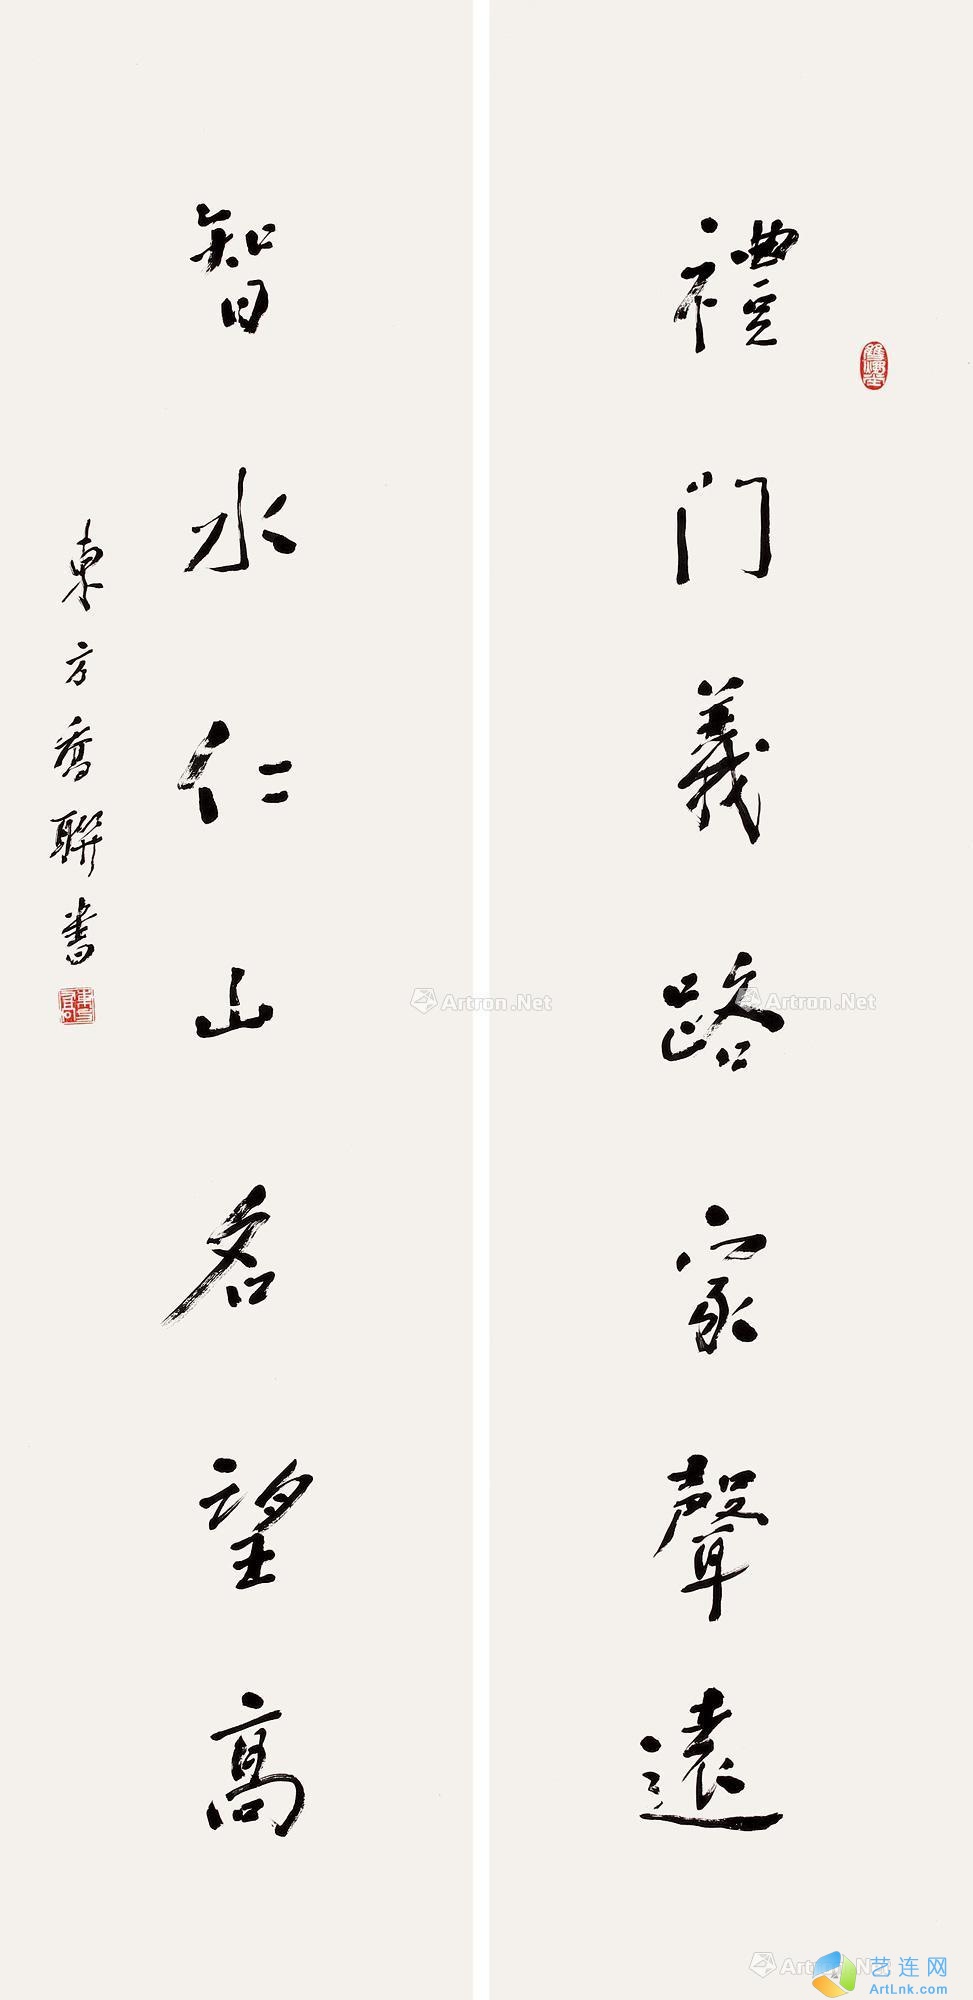 禮門義路家聲遠
智水仁山名望高
東方喬聯書
Artron.Net
Artron.Net
艺连网
ArtLnk.com